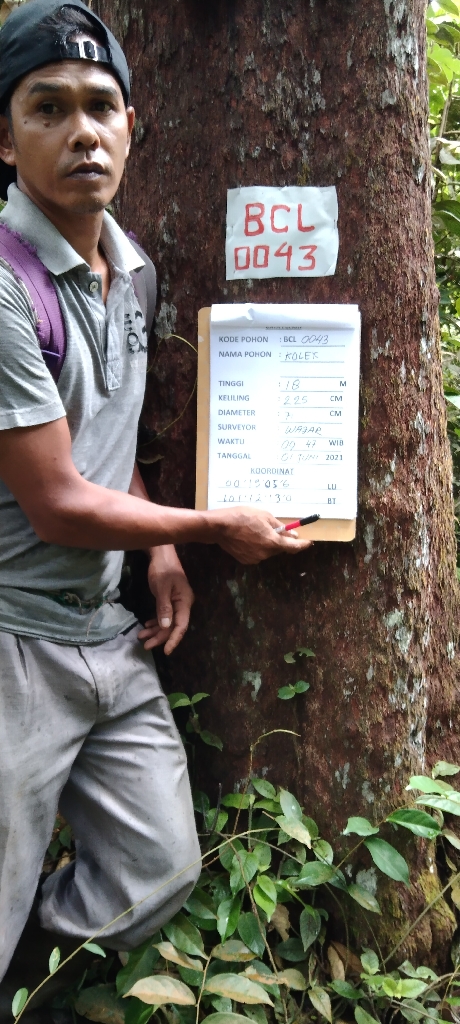 BCL
0043
KODE POHON : BCL 0043
NAMA POHON : KOLEK
TINGGI : 18 M
KELILING : 225 CM
DIAMETER : ? CM
SURVEYOR : WAJAR
WAKTU : 09 47 WIB
TANGGAL : 01 2021
KOORDINAT
LU
BT